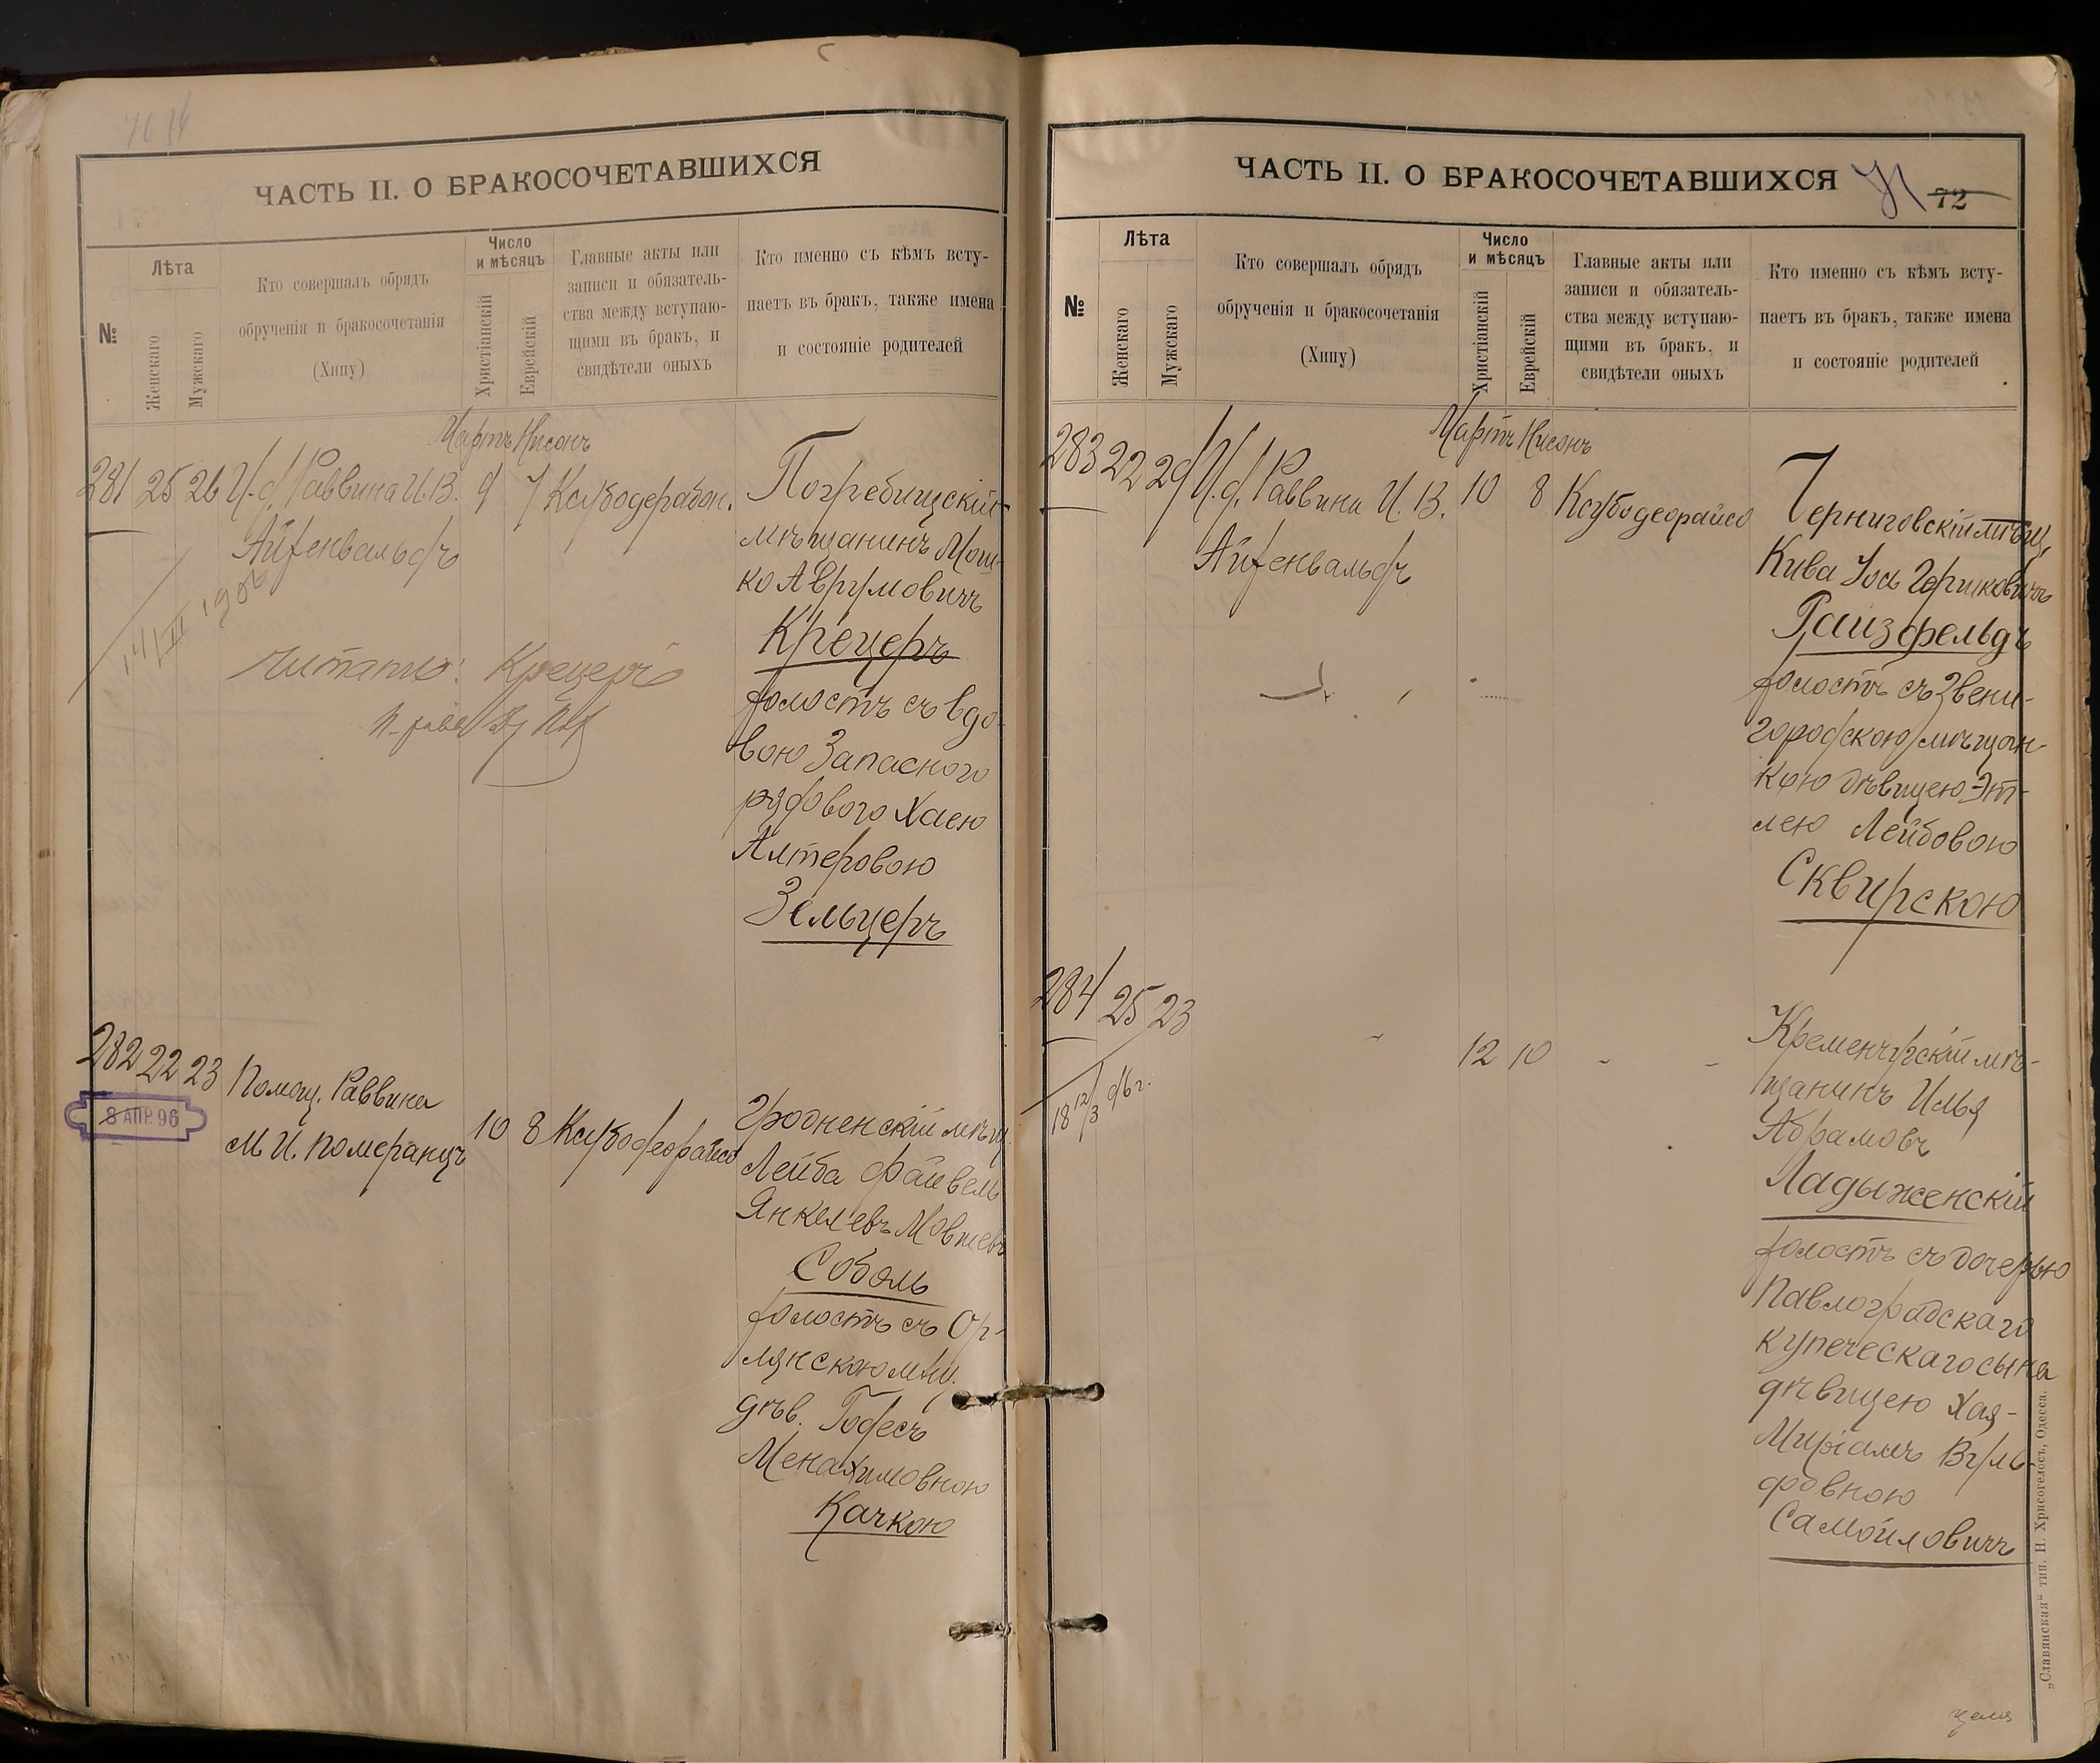 ЧАСТЬ II. О БРАКОСОЧЕТАВШИХСЯ
№
Лѣта
Женскаго
Мужскаго
Кто совершалъ обрядъ
обрученія и бракосочетанія
(Хипу)
Число
и мѣсяцъ
Христіанскій
Еврейскій
Главные акты или
записи и обязатель-
ства между вступаю-
щими въ бракъ, и
свидѣтели оныхъ
Кто именно съ кѣмъ всту-
паетъ въ бракъ, также имена
и состояніе родителей
Мартъ Нисонъ
281 25 26 И. д. Раввина И. В. 9 7 Ксубодерабон.
Айзенвальдъ
14/II 1902
Читать: Крецеръ
Погребищскій
мѣщанинъ Мош-
ко Аврумовичъ
Крецеръ
холостъ съ вдо-
вою Запасного
рядового Хаею
Алтеровою
Зельцеръ
282 22 23 Помощ. Раввина
8 АПР. 96
М. И. Померанцъ
10 8 Ксубодеорайсо
Гродненскій мѣщ.
Лейба Файвель
Янкелевъ Мовшевъ
Соболь
холостъ съ Ор-
лянскою мѣщ.
дѣв. Годесъ
Менахимовною
Качкою
ЧАСТЬ II. О БРАКОСОЧЕТАВШИХСЯ
71
72
№
Лѣта
Женскаго
Мужскаго
Кто совершалъ обрядъ
обрученія и бракосочетанія
(Хипу)
Число
и мѣсяцъ
Христіанскій
Еврейскій
Главные акты или
записи и обязатель-
ства между вступаю-
щими въ бракъ, и
свидѣтели оныхъ
Кто именно съ кѣмъ всту-
паетъ въ бракъ, также имена
и состояніе родителей
Мартъ Нисонъ
283 22 29 И. д. Раввина И. В. 10 8 Ксубодеорайсо
Айзенвальдъ
Черниговскій мѣщ.
Кива Іось Гершковичъ
Райзфельдъ
холостъ съ Звени-
городскою мѣщан-
кою дѣвицею Эт-
лею Лейбовою
Сквирскою
284 25 23 " 12 10 - -
18 12/3 96 г.
Кременчугскій мѣ-
щанинъ Илья
Абрамовъ
Ладыженскій
холостъ съ дочерью
Павлоградскаго
купеческаго сына
дѣвицею Хая-
Миріамъ Вуль-
фовною
Самойловичъ
„Славянская“ тип. Н. Хрисогелосъ, Одесса.